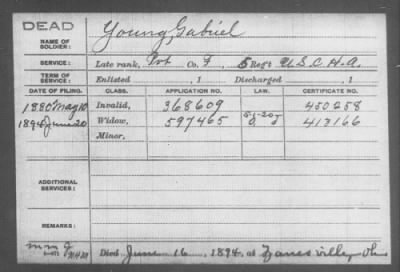 DEAD
NAME OF SOLDIER: Young, Gabriel
SERVICE: Late rank, Pvt Co. F, 5 Reg't U.S.C.H.A.
TERM OF SERVICE: Enlisted , 1 Discharged , 1
DATE OF FILING. CLASS. APPLICATION NO. LAW. CERTIFICATE NO.
1880 May 10 Invalid, 368609 450258
1894 June 20 Widow, 597465 413166
Minor,
ADDITIONAL SERVICES:
REMARKS:
Died June 16, 1894, at Zanesville, Oh